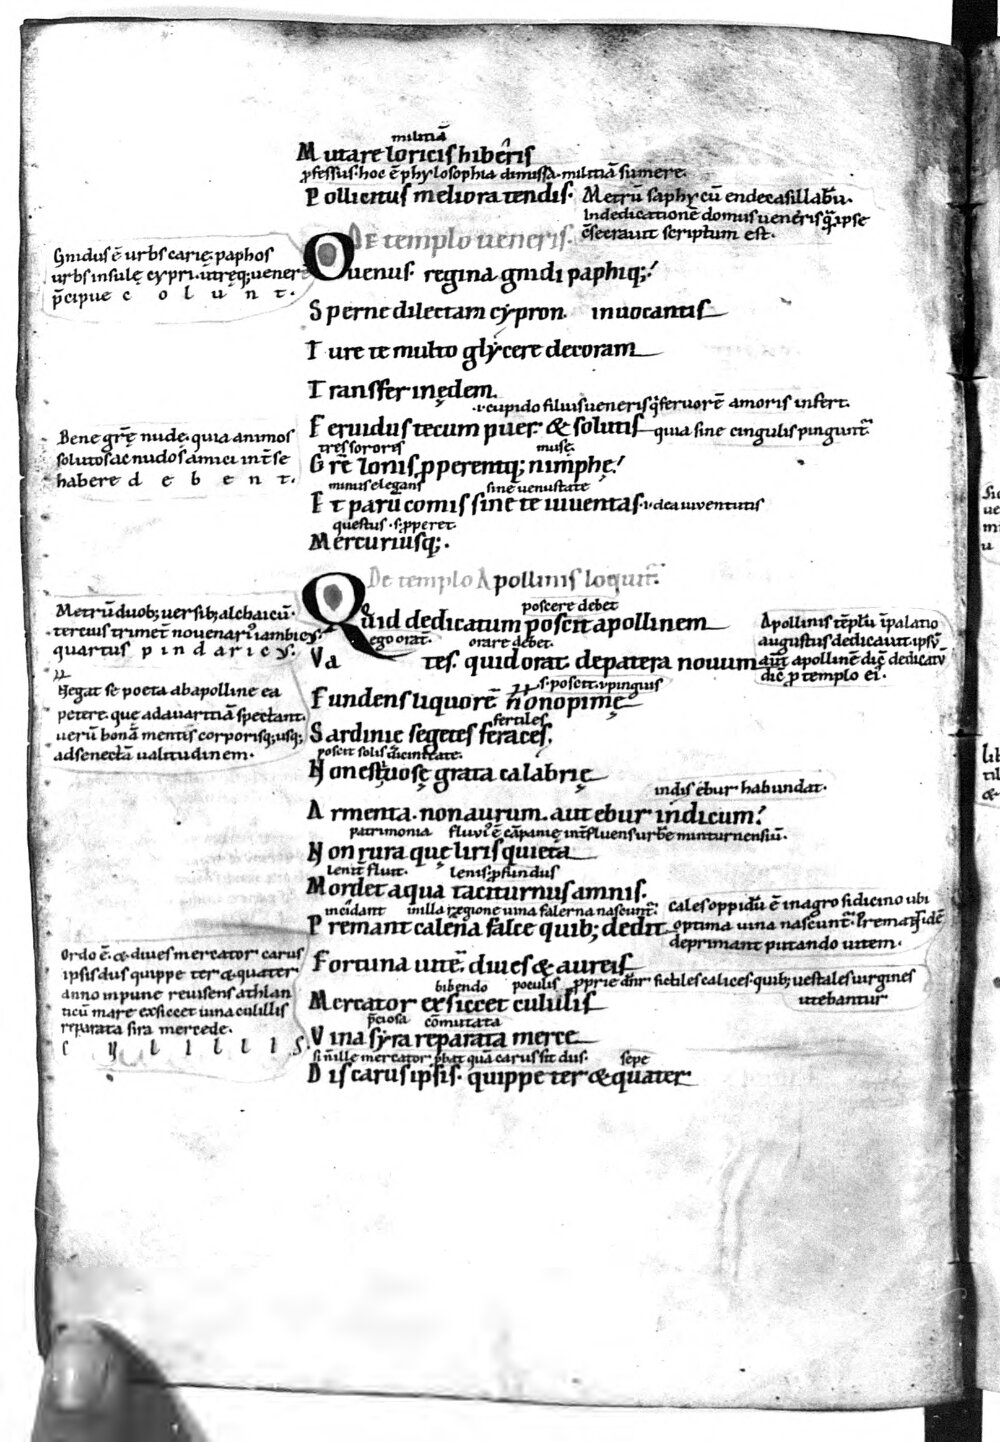 militiā
Mutare loricis hiberis
ꝓfessus. hoc ē phylosophia dimissa. militiā sumere.
Pollicitus meliora tendis.
Metrū saphycū endecasillabū.
In dedicatione domus ueneris quā ipse
cōsecrauit scriptum est.
DE templo ueneris.
Gnidus ē urbs carię. paphos
urbs insulę cypri. utręq; uenerē
p̄cipue colunt.
O uenus regina gnidi paphiq;!
Sperne dilectam cypron. inuocantis
Ture te multo glycerę decoram
Transfer in ędem.
.i. cupido filius ueneris q̄ feruorē amoris infert.
Feruidus tecum puer. & solutis
quia sine cingulis pingunt᷑
Bene grē nudę. quia animos
solutos ac nudos amici int̄ se
habere debent.
tres sorores
musę.
Grē zonis ꝓperentq; nimphę!
minus elegans
sine uenustate
Et parū comis sine te iuuentas
.i. dea iuuentutis
questus .s. ꝓperet.
Mercuriusq;.
De templo Apollinis loquit᷑.
poscere debet
Quid dedicatum poscit apollinem
ego orat.
orare debet.
Vates. quid orat. de patera nouum
Metrū duob; uersib; alchaicū.
tercius trimet̄ nouenariꝰ iambicꝰ.
quartus pindaricꝰ.
Apollinis tēplū ī palatio
augustus dedicauit. ipsū
aut̄ apollinē dic̄ dedicatū
dic̄ ꝓ templo ei.
Negat se poeta ab apolline ea
petere. que ad auaritiā spectant.
uerū bonā mentis corporisq; usq;
ad senectā ualitudinem.
.s. poscit. .i. pinguis
Fundens liquorē non opimę
fertiles
Sardinię segetes feraces.
Non estuosę grata calabrię
indis ebur habundat.
Armenta. non aurum. aut ebur indicum!
patrimonia
fluui ē cāpanię int̄fluens urbē minturnensiū.
Non rura quę liris quieta
lenit̄ fluit.
lenis. ꝓfundus
Mordet aqua taciturnus amnis.
incidant
in illa regione uina falerna nascunt᷑.
Premant calena falce quib; dedit
cales oppidū ē in agro sidicino ubi
optima uina nascunt᷑. Premant
deprimant putando uitem.
Fortuna uitē. diues & aureis
bibendo
poculis
ꝓprie dn̄r fictiles calices. quib; uestales uirgines
utebantur
Mercator exsiccet culullis
p̄ciosa
cōmutata
Vina syra reparata merce
sepe
Dis carus ipsis. quippe ter & quater
Ordo ē. & diues mercator carus
ipsis dus quippe ter & quater
anno inpune reuisens athlan
ticū mare exsiccet uina culillis
reparata sira mercede.